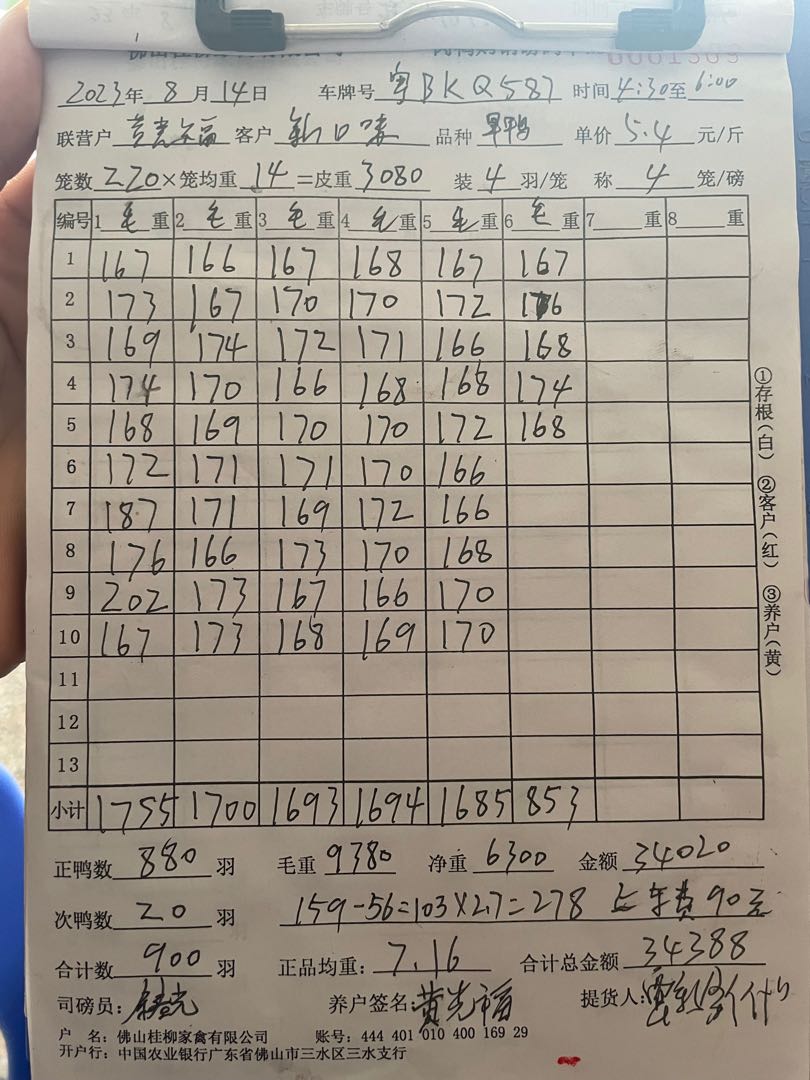 2023年 8月 14日 车牌号 粤BKQ587 时间 4:30至 6:00
联营户 黄光福 客户 新口味 品种 旱鸭 单价 5.4 元/斤
笼数 220×笼均重 14 =皮重 3080 装 4 羽/笼 称 4 笼/磅
编号 1 毛 重 2 毛 重 3 毛 重 4 毛 重 5 毛 重 6 毛 重 7 重 8 重
1 167 166 167 168 167 167
2 173 167 170 170 172 176
3 169 174 172 171 166 168
4 174 170 166 168 168 174
5 168 169 170 170 172 168
6 172 171 171 170 166
7 187 171 169 172 166
8 176 166 173 170 168
9 202 173 167 166 170
10 167 173 168 169 170
11
12
13
小计 1755 1700 1693 1694 1685 853
正鸭数 880 羽 毛重 9380 净重 6300 金额 34020
次鸭数 20 羽 159-56=103×2.7=278 上车费90元
合计数 900 羽 正品均重: 7.16 合计总金额 34388
司磅员: 养户签名: 黄光福 提货人:
户 名: 佛山桂柳家禽有限公司 账号: 444 401 010 400 169 29
开户行: 中国农业银行广东省佛山市三水区三水支行
①存根(白) ②客户(红) ③养户(黄)